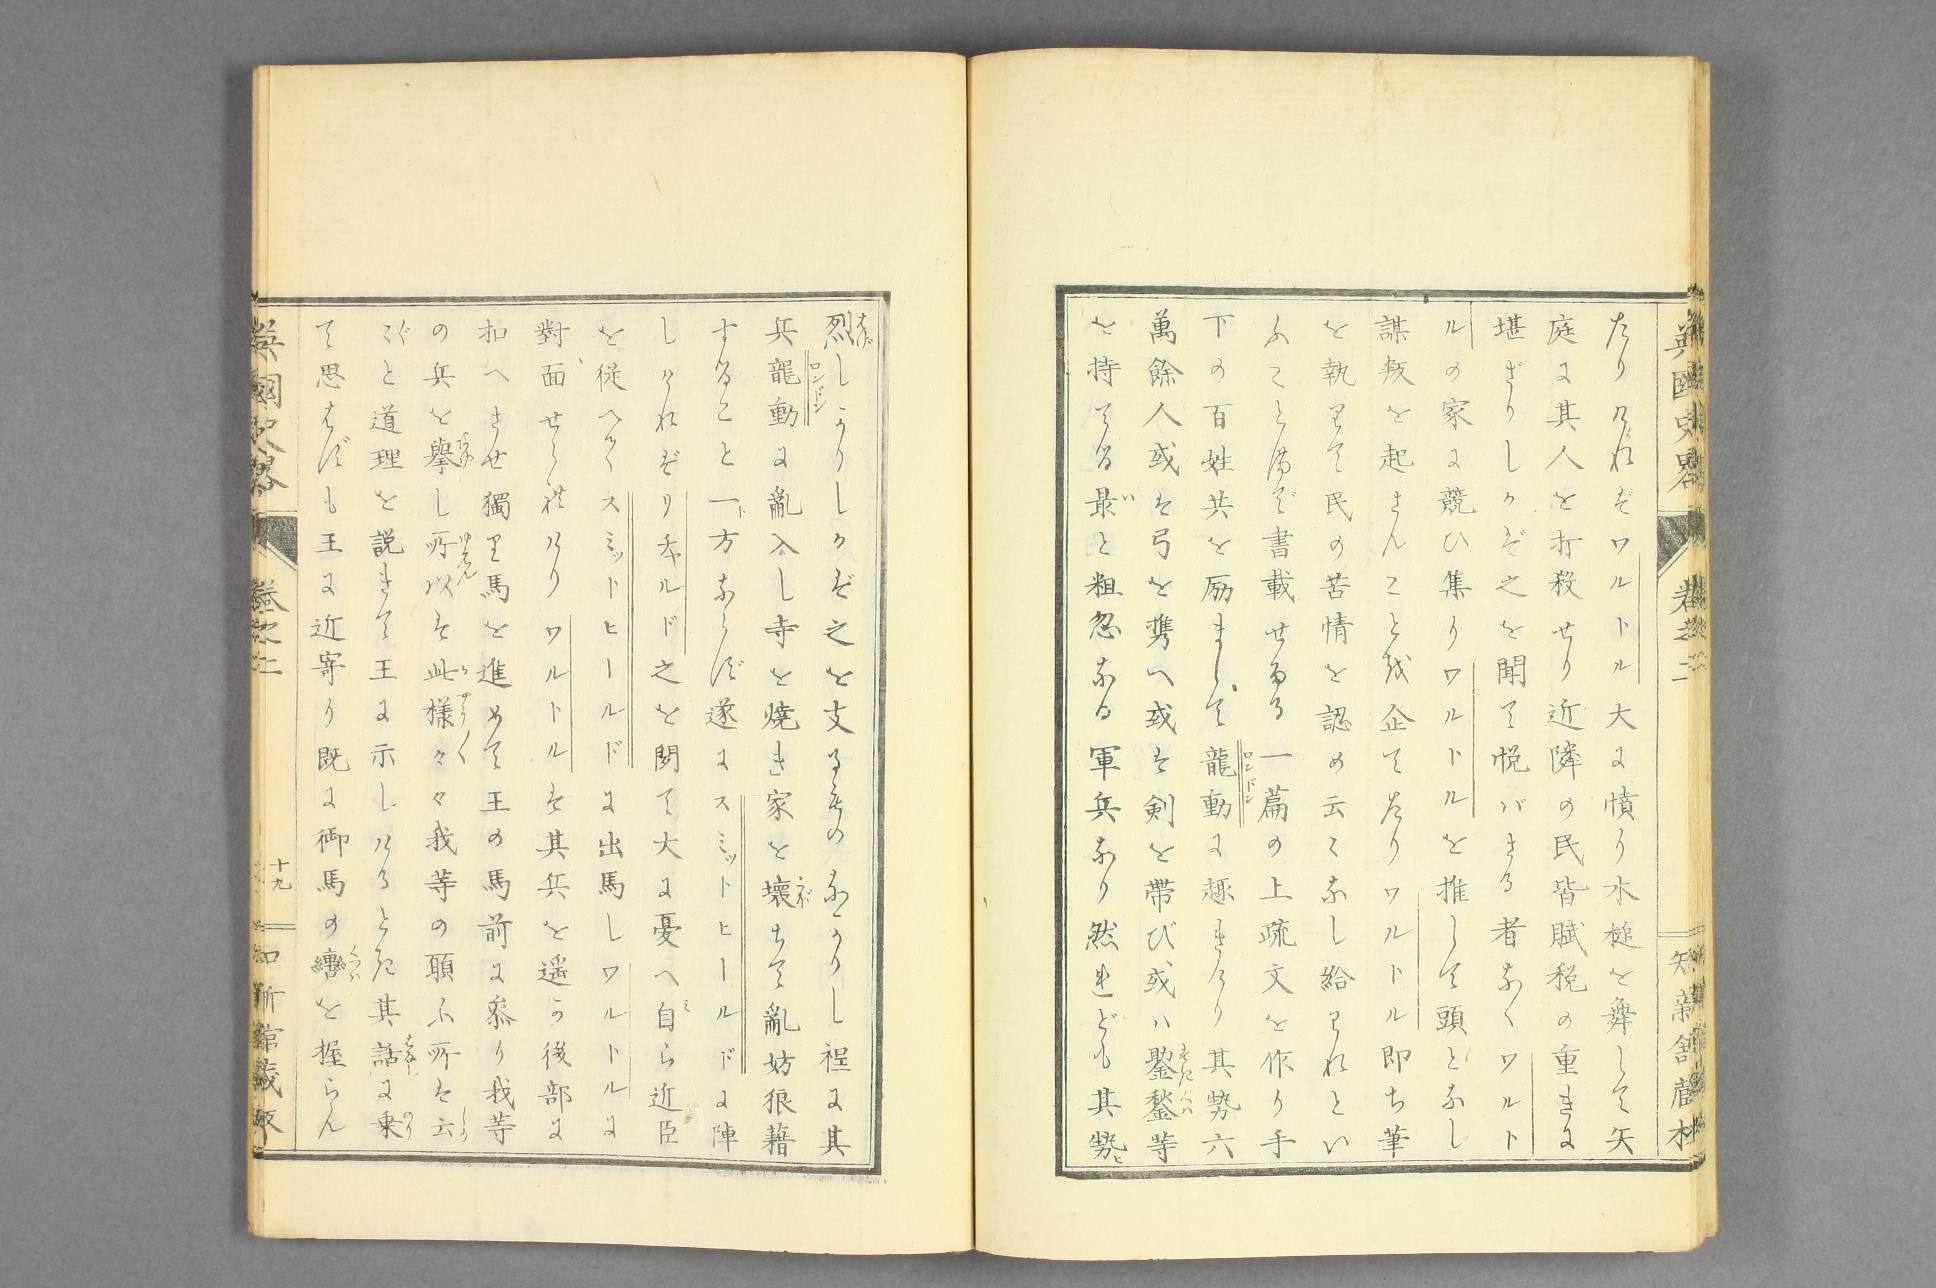 英國史畧 卷之二 知新館蔵板
たりけれどワルトル大に憤り木槌を舞して矢
庭に其人を打殺せり近隣の民皆賦税の重きに
堪ざりしかど之を聞て悦バざる者なくワルト
ルの家に競ひ集りワルトルを推して頭となし
謀叛を起さんことを企てたりワルトル即ち筆
を執りて民の苦情を認め云々なし給りれとい
ふことまで書載せたる一篇の上疏文を作り手
下の百姓共を励まして龍動に趣きけり其勢六
萬餘人或は弓を携へ或は剣を帯び、或ハ鋻鍫等
を持てる最と粗忽なる軍兵なり然れども其勢ヒ
烈しかりしかど之を支るものなかりし程に其
兵龍動に亂入し寺を焼き家を壊ちて亂妨狼藉
することと一方ならず遂にスミットヒールドに陣
しけれどリチャルド之を聞て大に憂へ自ら近臣
を従へてスミットヒールドに出馬しワルトルに
對面せられけりワルトルは其兵を遥か後部に
扣へさせ獨り馬を進めて王の馬前に参り我等
の兵を擧し所以は此様々々我等の願ふ所は云
々と道理を説きて王に示しけるとき其話に乗
て思はずも王に近寄り既に御馬の轡を握らん
英國史畧 卷之二 十九 知新館蔵板